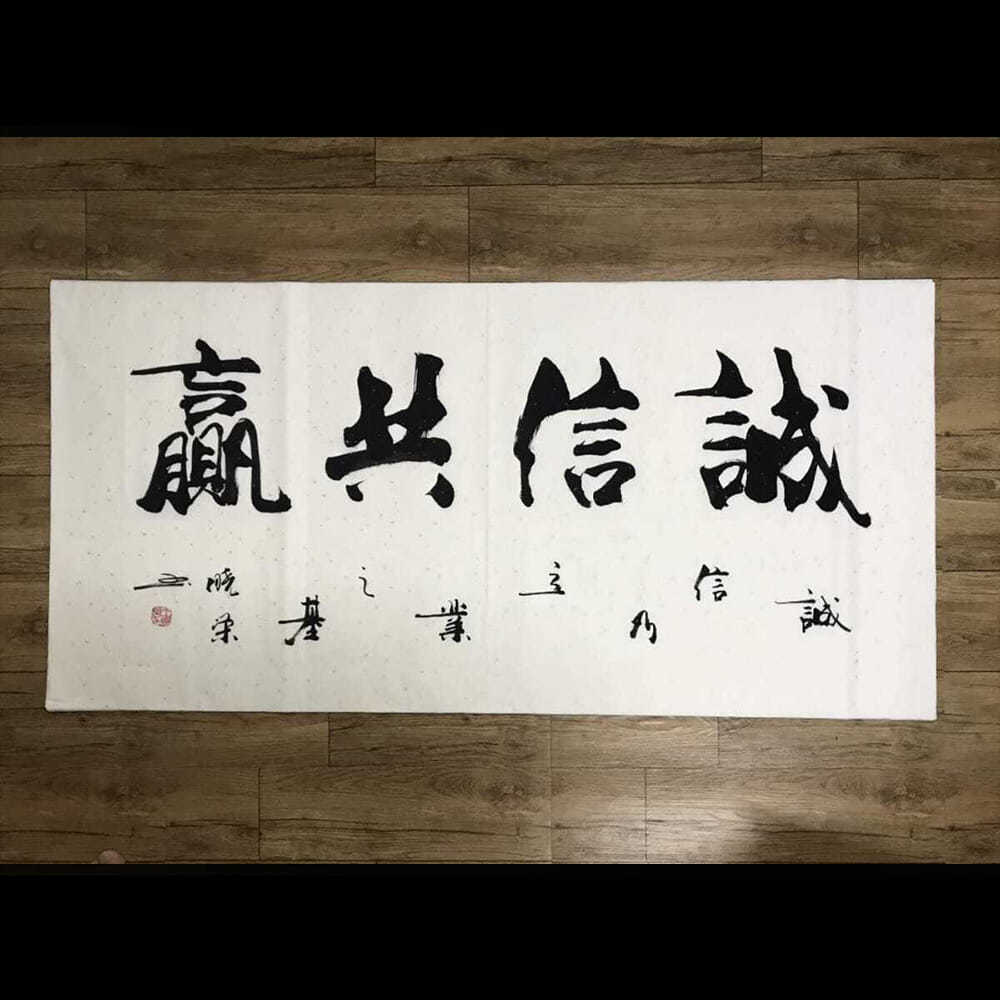 誠信共贏
誠信乃立業之基
曉榮書